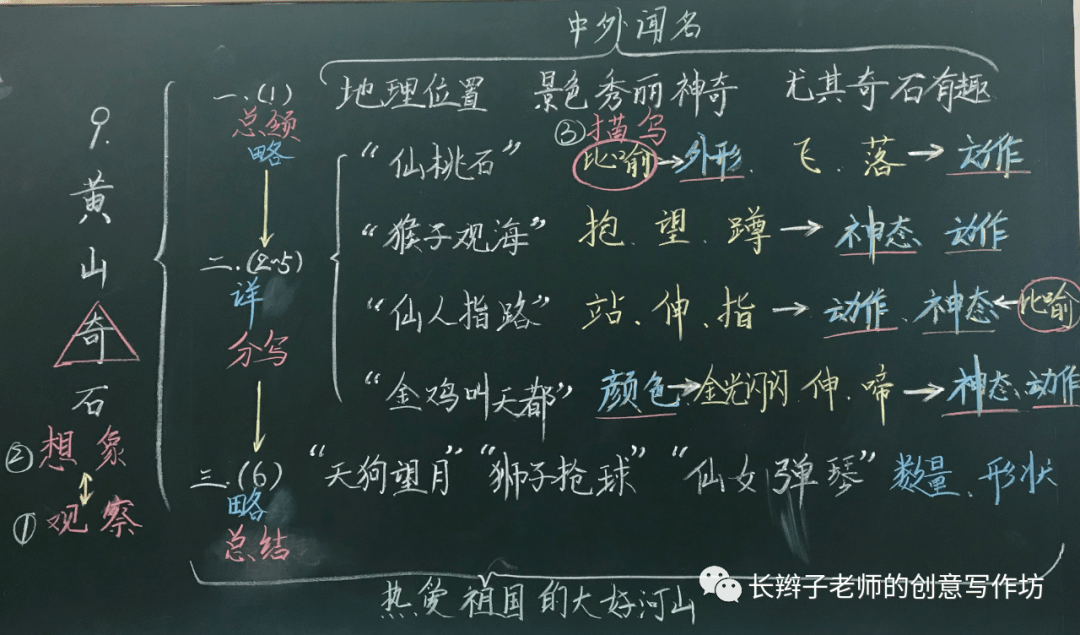 中外闻名
一.(1) 地理位置 景色秀丽神奇 尤其奇石有趣
总领
略
③描写
"仙桃石" 比喻→外形. 飞.落→动作
"猴子观海" 抱.望.蹲→神态 动作
二.(2~5)
详
分写
"仙人指路" 站、伸、指→动作、神态←比喻
"金鸡叫天都" 颜色→金光闪闪 伸.啼→神态.动作
三.(6) "天狗望月" "狮子抢球" "仙女弹琴" 数量、形状
略
总结
9.黄山奇石
②想象
①观察
热爱祖国的大好河山
长辫子老师的创意写作坊